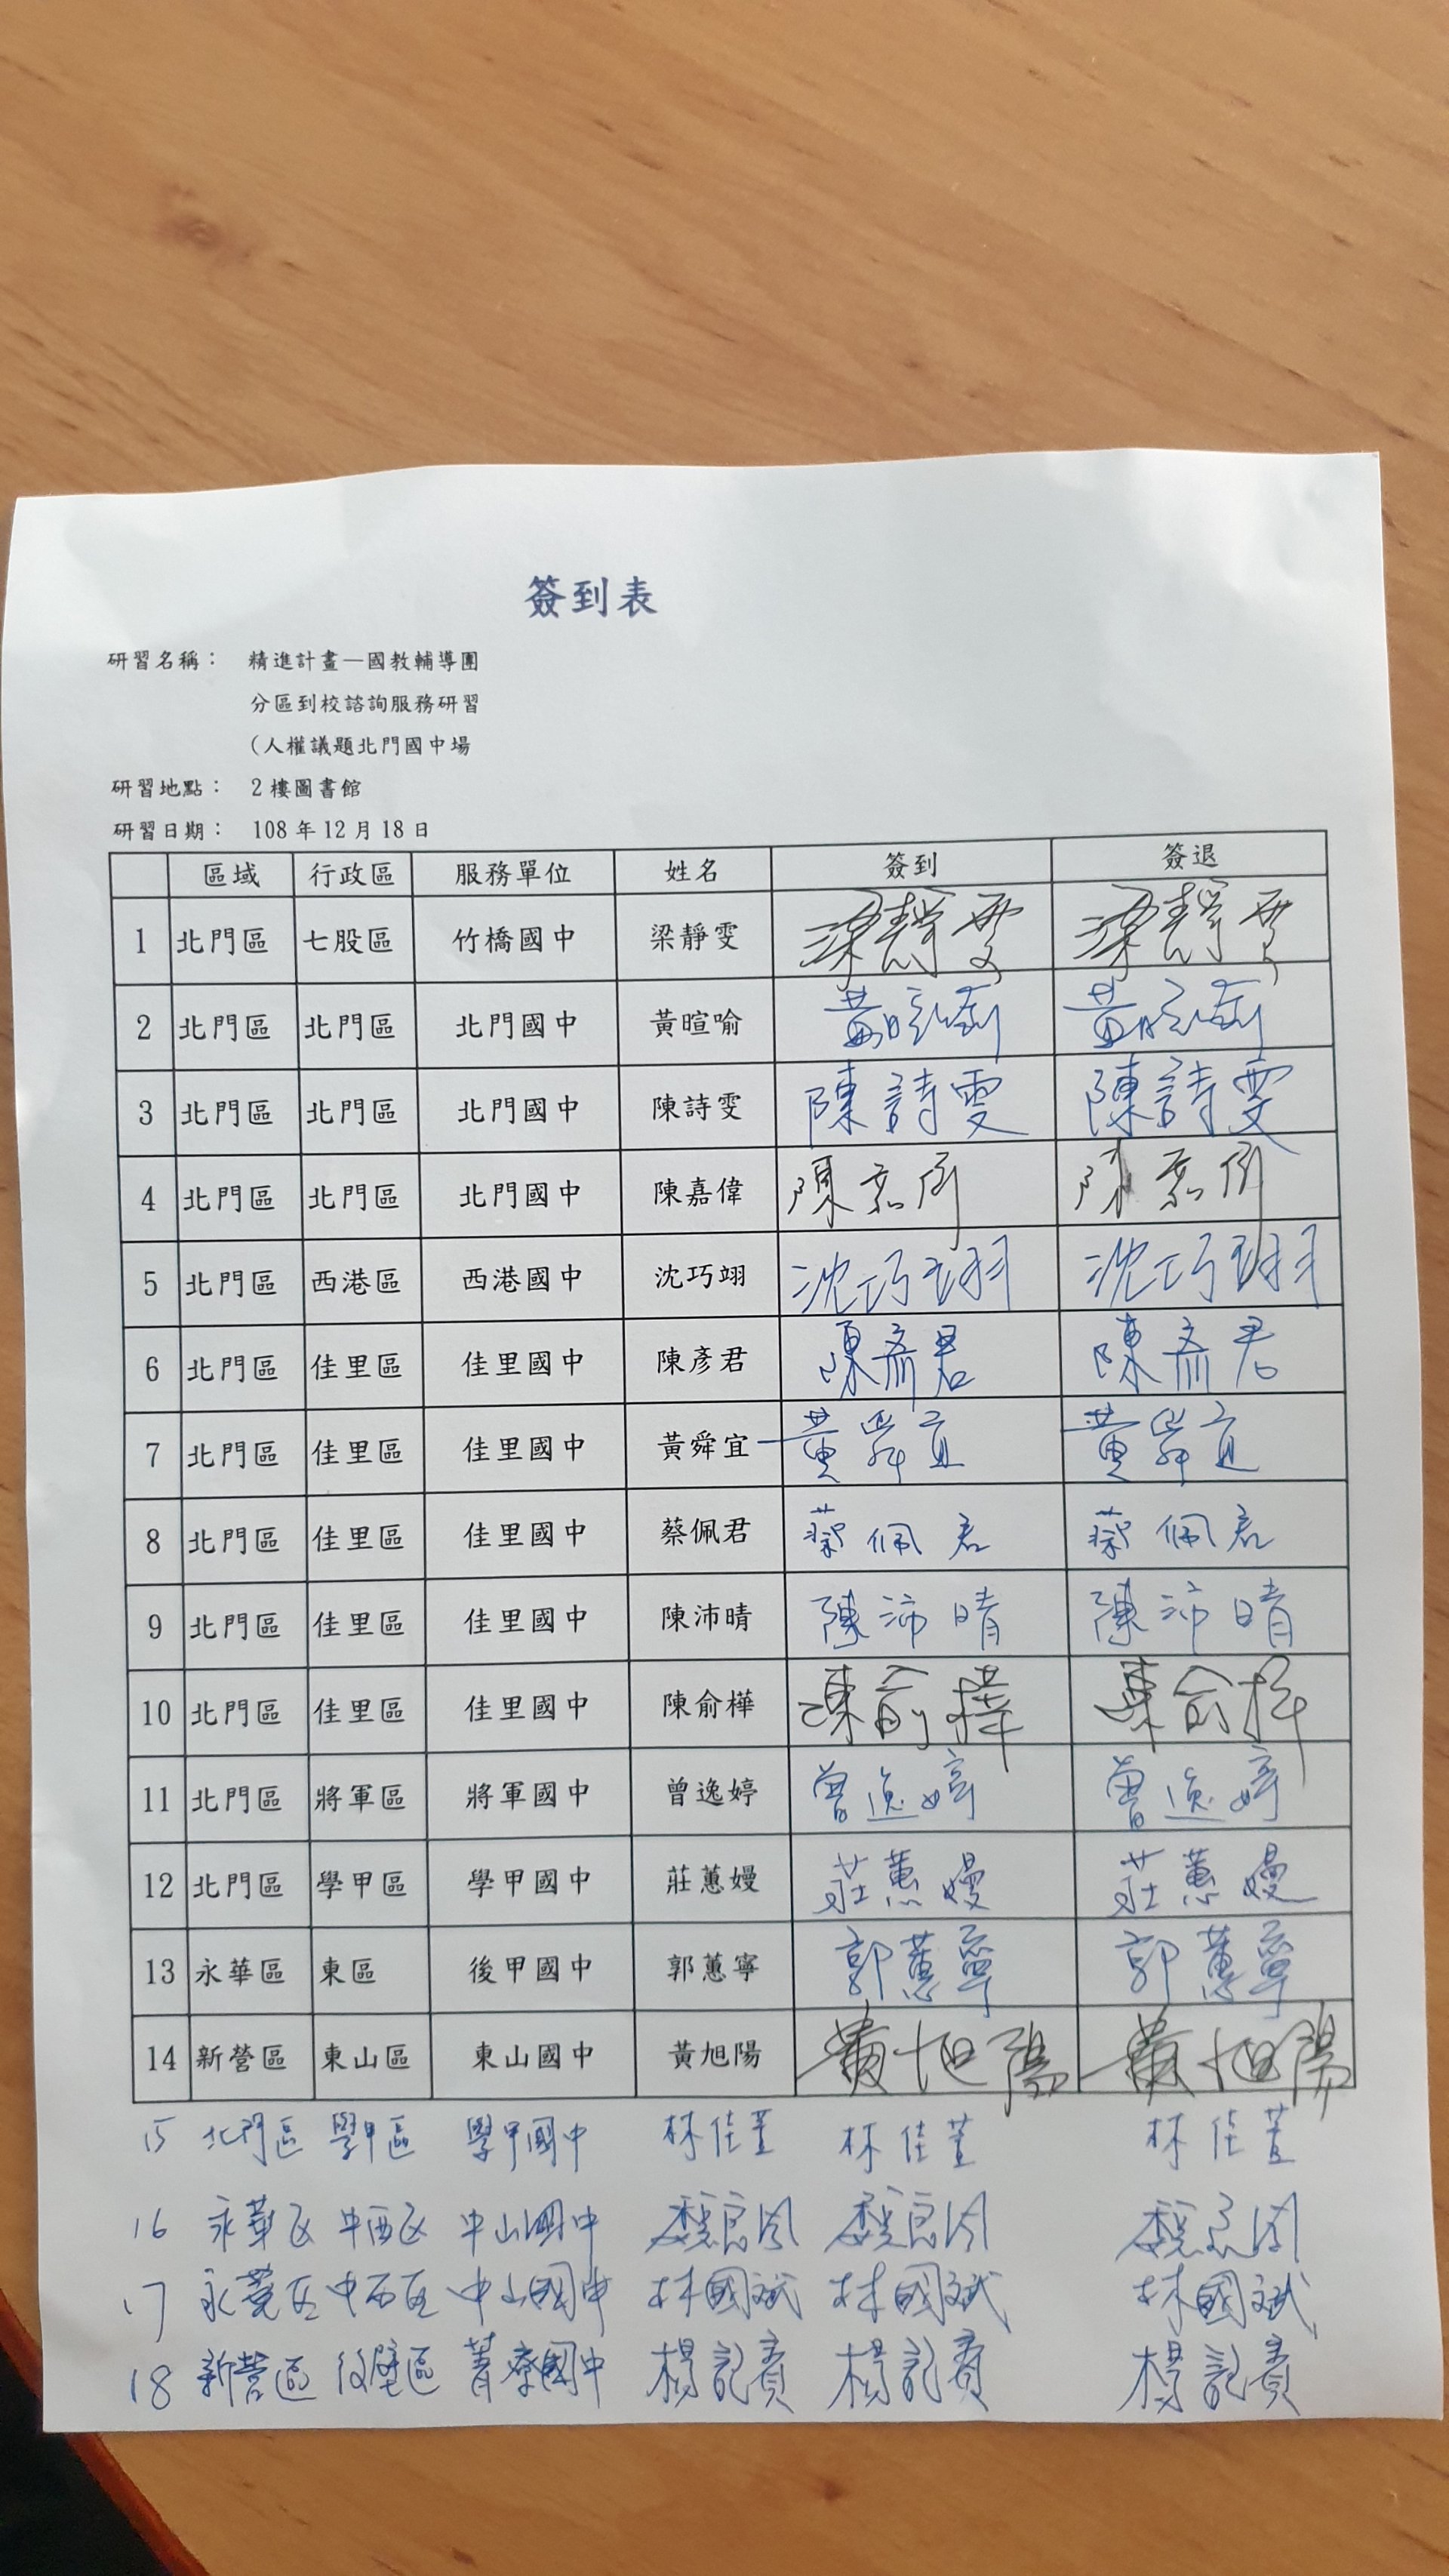 簽到表
研習名稱： 精進計畫—國教輔導團
分區到校諮詢服務研習
(人權議題北門國中場
研習地點： 2樓圖書館
研習日期： 108年12月18日
區域 行政區 服務單位 姓名 簽到 簽退
1 北門區 七股區 竹橋國中 梁靜雯 梁靜雯 梁靜雯
2 北門區 北門區 北門國中 黃暄喻 黃暄喻 黃暄喻
3 北門區 北門區 北門國中 陳詩雯 陳詩雯 陳詩雯
4 北門區 北門區 北門國中 陳嘉偉 陳嘉偉 陳嘉偉
5 北門區 西港區 西港國中 沈巧翊 沈巧翊 沈巧翊
6 北門區 佳里區 佳里國中 陳彥君 陳彥君 陳彥君
7 北門區 佳里區 佳里國中 黃舜宜 黃舜宜 黃舜宜
8 北門區 佳里區 佳里國中 蔡佩君 蔡佩君 蔡佩君
9 北門區 佳里區 佳里國中 陳沛晴 陳沛晴 陳沛晴
10 北門區 佳里區 佳里國中 陳俞樺 陳俞樺 陳俞樺
11 北門區 將軍區 將軍國中 曾逸婷 曾逸婷 曾逸婷
12 北門區 學甲區 學甲國中 莊蕙嫚 莊蕙嫚 莊蕙嫚
13 永華區 東區 後甲國中 郭蕙寧 郭蕙寧 郭蕙寧
14 新營區 東山區 東山國中 黃旭陽 黃旭陽 黃旭陽
15 北門區 學甲區 學甲國中 林佳萱 林佳萱 林佳萱
16 永華区 中西区 中山國中
17 永華区 中西区 中山國中 林國斌 林國斌 林國斌
18 新營區 後壁區 菁寮國中